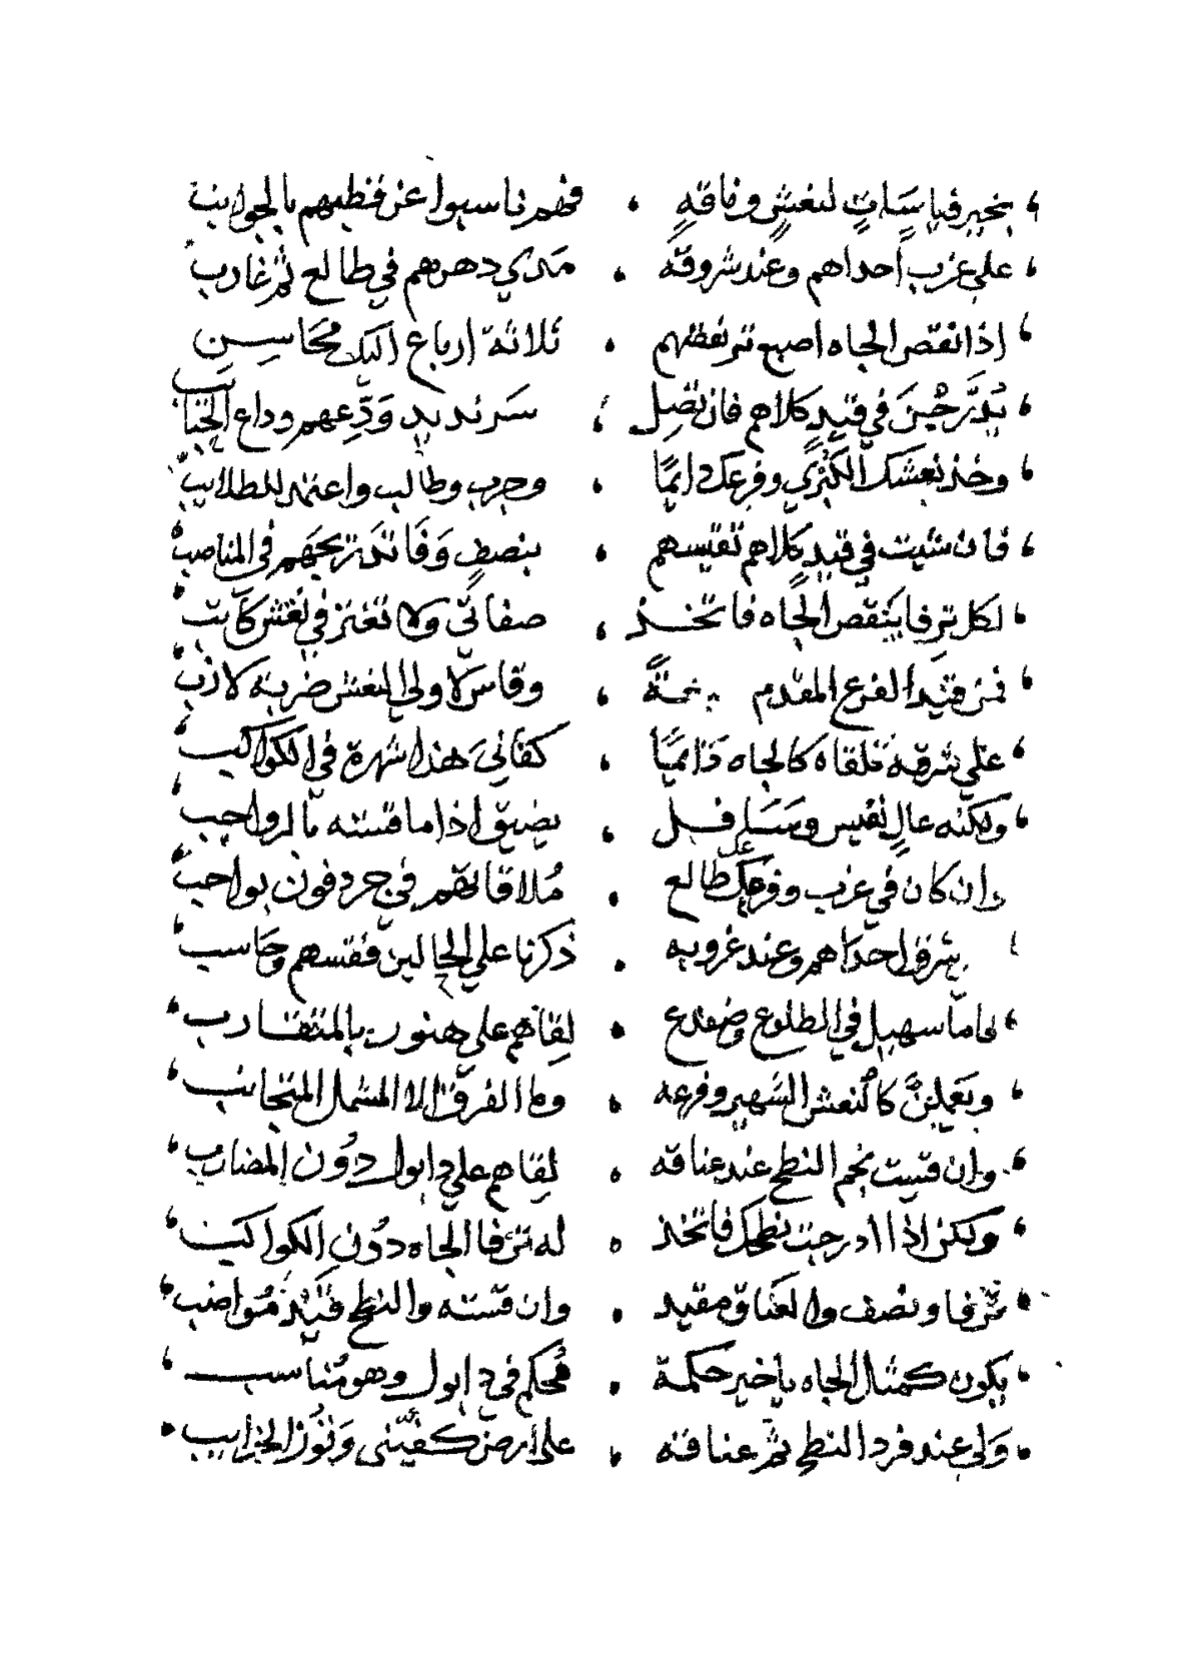 بخير قياسات لنعش وفاقه ، فهم ناسبوا عن قطبهم بالجوانب
على غرب احداهم وعند شروقه ، مدى دهرهم في طالع ثم غارب
اذا نقص الجاه اصبع تر نعظهم ، ثلاثة ارباع اليك محاسن
يدرجن في قيد كلاهم فان تصل ، سرنديب ودعهم وداع الجنائب
وخذ نعشك الكبرى وفرعك دائما ، وجرب وطالب واعتمد للطلائب
فان شئت في قيد كلاهم تقيسهم ، بنصف وفا تدتر يجهم في المناصب
لكل ترفا ينقص الجاه فاتخذ ، صفاتي ولا تغتر في نعش كاتب
فمن قيد الفرع المقدم ، وقاس لاولى النعش ضربة لازب
على شرقه تلقاه كالجاه دائما ، كفاني هذا شهرة في الكواكب
ولكنه عال نفيس وسلر قبل ، يضيق اذا ما قسته بالرواجب
وان كان في غرب وفرعك طالع ، ملاقاتهم في جردفون بواجب
بشرق احداهم وعند غروبه ، ذكرنا على الحالين فقسهم وحاسب
فاما سهيل في الطلوع وضفدع ، لقاهم على هنور بالمتقارب
ويعملن كالنعش الشهير وفرعه ، وما الفرق الا الشمال المتجانب
وان قست نجم النطح عند عناقه ، لقاهم على دابول دون المضارب
ولكن اذا ادرجت نطحك فاتخذ ، له ترفا الجاه دون الكواكب
ترفا ونصف والعناق مقيد ، وان قسته والنطح قيد مواضب
يكون كمثال الجاه ياخير حكمة ، محكم في دابول وهو مناسب
ولي عند فرد النطح ثم عناقه ، على ارض كفيني ونور الخرايب